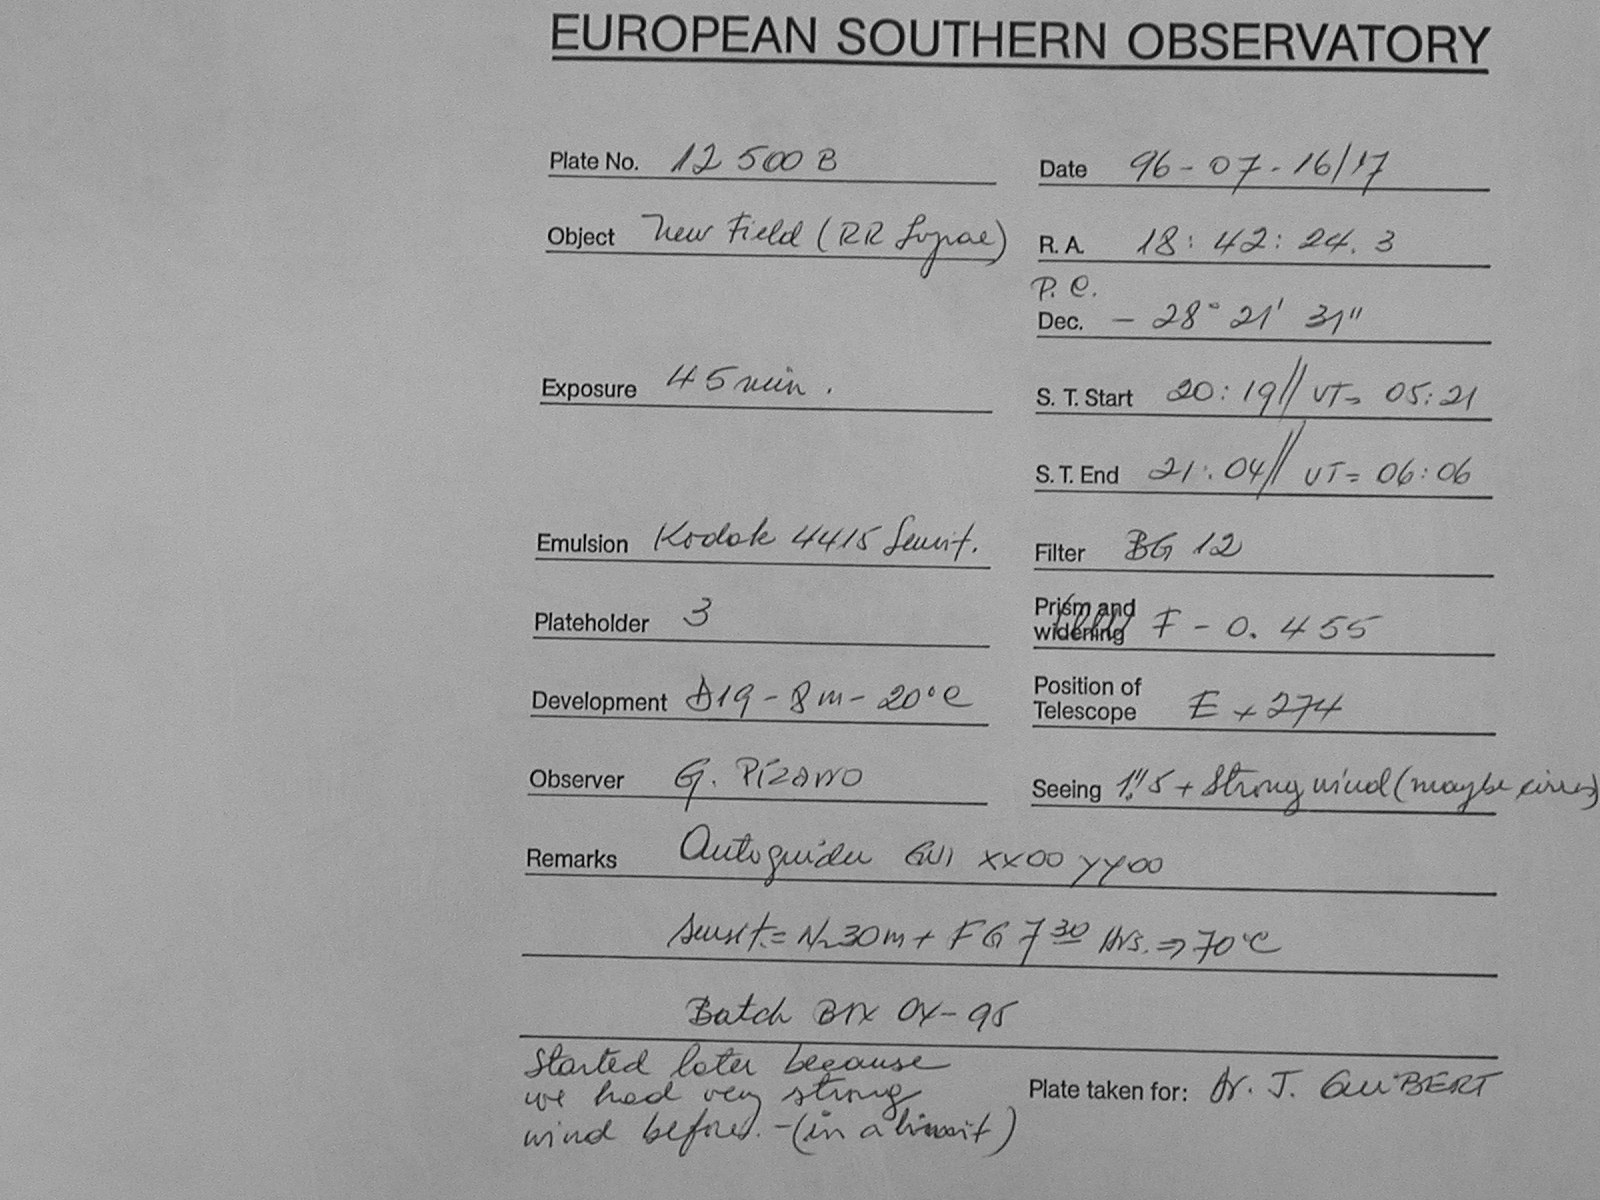 EUROPEAN SOUTHERN OBSERVATORY
Plate No. 12 500 B
Date 96-07-16/17
Object New Field (RR Lyrae)
R. A. 18:42:24.3
P. C.
Dec. -28° 21' 31"
Exposure 45 min.
S. T. Start 20:19// UT= 05:21
S. T. End 21:04// UT= 06:06
Emulsion Kodak 4415 Sensit.
Filter BG 12
Plateholder 3
Prism and
widening F-0.455
Development D19-8m-20°C
Position of
Telescope E +274
Observer G. Pizarro
Seeing 1".5 + Strong wind (maybe cirrus)
Remarks Autoguider XX00 YY00
Sensit.= N2 30m + FG 7 30 Hrs. ⇒ 70°C
Batch 04-95
Started later because
we had very strong
wind before. - (in a limit)
Plate taken for: Dr. J. GUIBERT